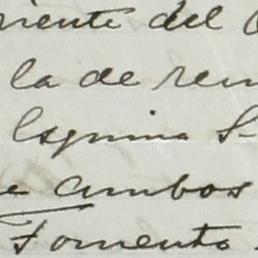 niente del
la de rem
Esquina S-
e ambos
Fomento